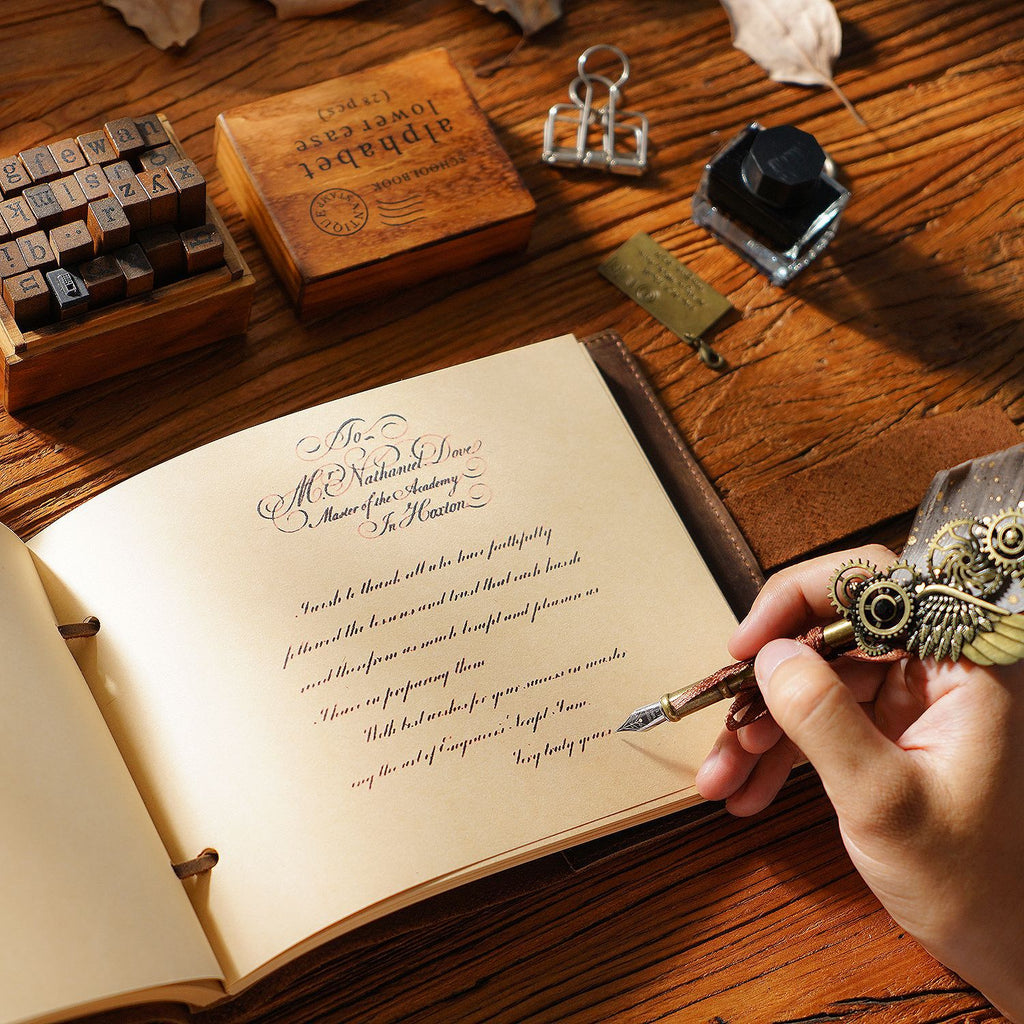 alphabet
lower case
(28 pcs)
SCHOOLBOOK
ANTIQUE
g f e w a n
k m l s
z y x
i b
u
To~
Mr. Nathaniel Dove
Master of the Academy
In Hoxton
I wish to thank all who have faithfully
followed the lessons and trust that each has de
rived therefrom as much benefit and pleasure as
I have in preparing them
With best wishes for your success in master
ing the art of Engrossers' Script I am.
Very truly yours